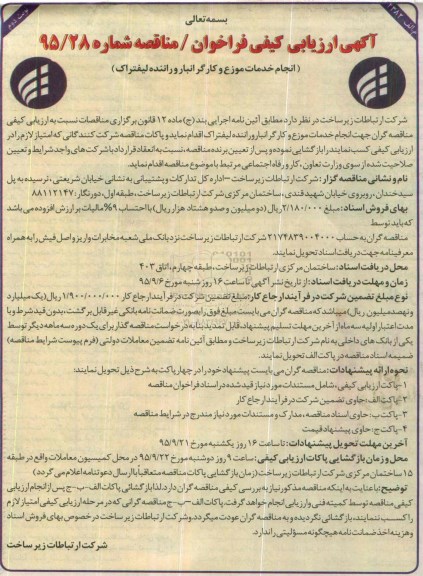 بسمه تعالی
آگهی ارزیابی کیفی فراخوان / مناقصه شماره ۹۵/۲۸
( انجام خدمات موزع و کارگر انبار و راننده لیفتراک )
شرکت ارتباطات زیرساخت در نظر دارد مطابق آئین نامه اجرایی بند (ج) ماده ۱۲ قانون برگزاری مناقصات نسبت به ارزیابی کیفی
مناقصه گران جهت انجام خدمات موزع و کارگر انبار و راننده لیفتراک اقدام نماید و پاکات مناقصه شرکت کنندگانی که امتیاز لازم را در
ارزیابی کیفی کسب نمایند را بازگشایی نموده و پس از تعیین برنده مناقصه، نسبت به انعقاد قرارداد با شرکت های واجد شرایط و تعیین
صلاحیت شده از سوی وزارت تعاون، کار و رفاه اجتماعی مرتبط با موضوع مناقصه اقدام نماید.
نام و نشانی مناقصه گزار : شرکت ارتباطات زیرساخت – اداره کل تدارکات و پشتیبانی به نشانی خیابان شریعتی، نرسیده به پل
سید خندان، روبروی خیابان شهید قندی، ساختمان مرکزی شرکت ارتباطات زیرساخت، طبقه اول، دورنگار: ۸۸۱۱۲۱۴۷
بهای فروش اسناد: مبلغ ۲/۱۸۰/۰۰۰ ریال (دو میلیون و صد و هشتاد هزار ریال) با احتساب ۹% مالیات بر ارزش افزوده می باشد
که باید توسط
مناقصه گران به حساب ۲۱۷۴۸۳۹۰۰۴۰۰۰ شرکت ارتباطات زیرساخت نزد بانک ملی شعبه مخابرات واریز و اصل فیش را به همراه
معرفینامه جهت دریافت اسناد تحویل نمایند.
محل دریافت اسناد: ساختمان مرکزی ارتباطات زیرساخت، طبقه چهارم، اتاق ۴۰۳
زمان و مهلت دریافت اسناد: از تاریخ نشر آگهی تا ساعت ۱۶ روز شنبه مورخ ۹۵/۹/۶
نوع مبلغ تضمین شرکت در فرآیند ارجاع کار: مبلغ تضمین شرکت در فرآیند ارجاع کار ۱/۹۰۰/۰۰۰/۰۰۰ ریال (یک میلیارد
و نهصد میلیون ریال) میباشد که مناقصه گران می بایست مبلغ فوق را بصورت ضمانت نامه بانکی غیر قابل برگشت، بدون قید و شرط و با
مدت اعتبار اولیه سه ماه از آخرین مهلت تسلیم پیشنهاد، قابل تمدید بنا به درخواست مناقصه گذار برای یک دوره سه ماهه دیگر توسط
یکی از بانک های داخلی به نام شرکت ارتباطات زیرساخت و مطابق آئین نامه تضمین معاملات دولتی (فرم پیوست شرایط مناقصه)
ضمیمه اسناد مناقصه در پاکت الف تحویل نمایند.
نحوه ارائه پیشنهادات: مناقصه گران می بایست پیشنهاد خود را در چهار پاکت به شرح ذیل تحویل نمایند:
۱- پاکت ارزیابی کیفی، شامل مستندات مورد نیاز قید شده در اسناد فراخوان مناقصه
۲- پاکت الف: حاوی تضمین شرکت در فرآیند ارجاع کار
۳- پاکت ب: حاوی اسناد مناقصه، مدارک و مستندات مورد نیاز مندرج در شرایط مناقصه
۴- پاکت ج: حاوی پیشنهاد قیمت
آخرین مهلت تحویل پیشنهادات: تا ساعت ۱۶ روز یکشنبه مورخ ۹۵/۹/۲۱
محل و زمان بازگشایی پاکات ارزیابی کیفی: ساعت ۹ روز دوشنبه مورخ ۹۵/۹/۲۲ در محل کمیسیون معاملات واقع در طبقه
۱۵ ساختمان مرکزی شرکت ارتباطات زیرساخت (زمان بازگشایی پاکات مناقصه متعاقبا با ارسال دعوتنامه اعلام می گردد)
توضیح: با عنایت به اینکه مناقصه مذکور نیاز به بررسی کیفی مناقصه گران دارد، لذا بازگشائی پاکات الف – ب – ج پس از انجام ارزیابی
کیفی مناقصه توسط کمیته فنی و ارزیابی انجام خواهد گرفت. پاکات الف – ب – ج مناقصه گرانی که در مرحله ارزیابی کیفی امتیاز لازم
را کسب ننمایند، بازگشائی نگردیده و به مناقصه گران عودت میگردد. و شرکت ارتباطات زیرساخت در خصوص بهای فروش اسناد
و هزینه اخذ ضمانت نامه هیچگونه مسؤلیتی را ندارد.
شرکت ارتباطات زیر ساخت